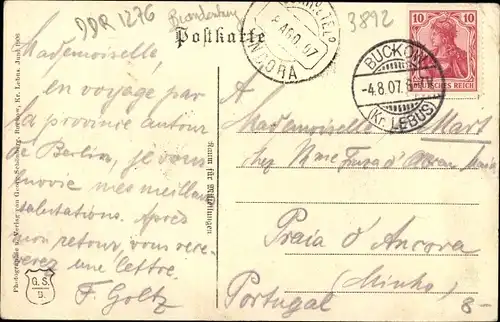 DDR 1276
Brandenburg
3892
Postkarte
8 AGO. 07
ANCORA
10 10
DEUTSCHES REICH
BUCKOW
-4.8.07.
(Kr. LEBUS)
Mademoiselle,
en voyage par
la province autour
de Berlin, je vous
envoie mes meilleures
salutations. Après
mon retour, vous rece-
verez une lettre.
F. Goltz
Raum für Mitteilungen
Photographie u. Verlag von Georg Schönberg, Buckow, Kr. Lebus. Juni 1906
G. S.
B.
A
Mademoiselle Mary
chez Mme
Praia d'Ancora
(Minho)
Portugal
8-